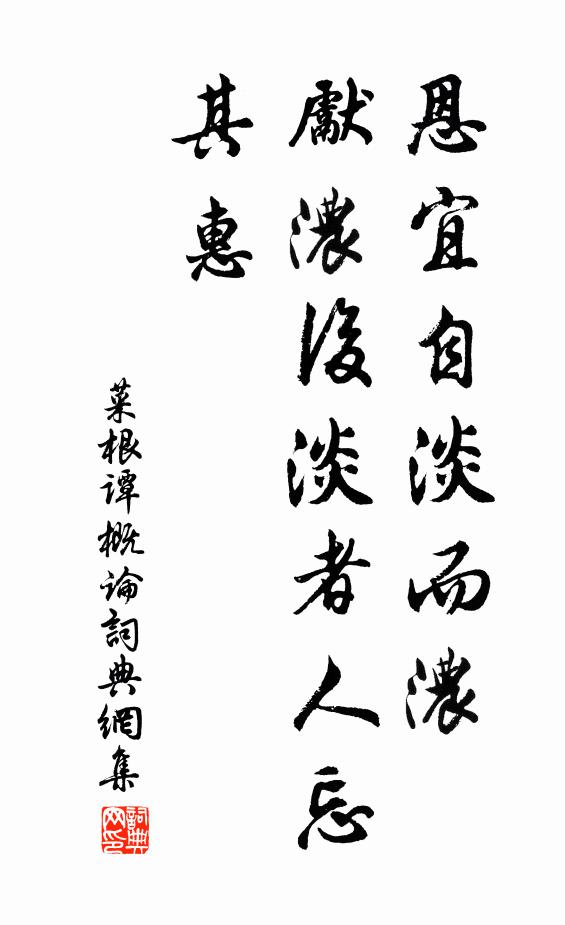 恩宜自淡而濃
獻濃後淡者人忘
其惠
菜根譚概論詞典網集
詞典网印